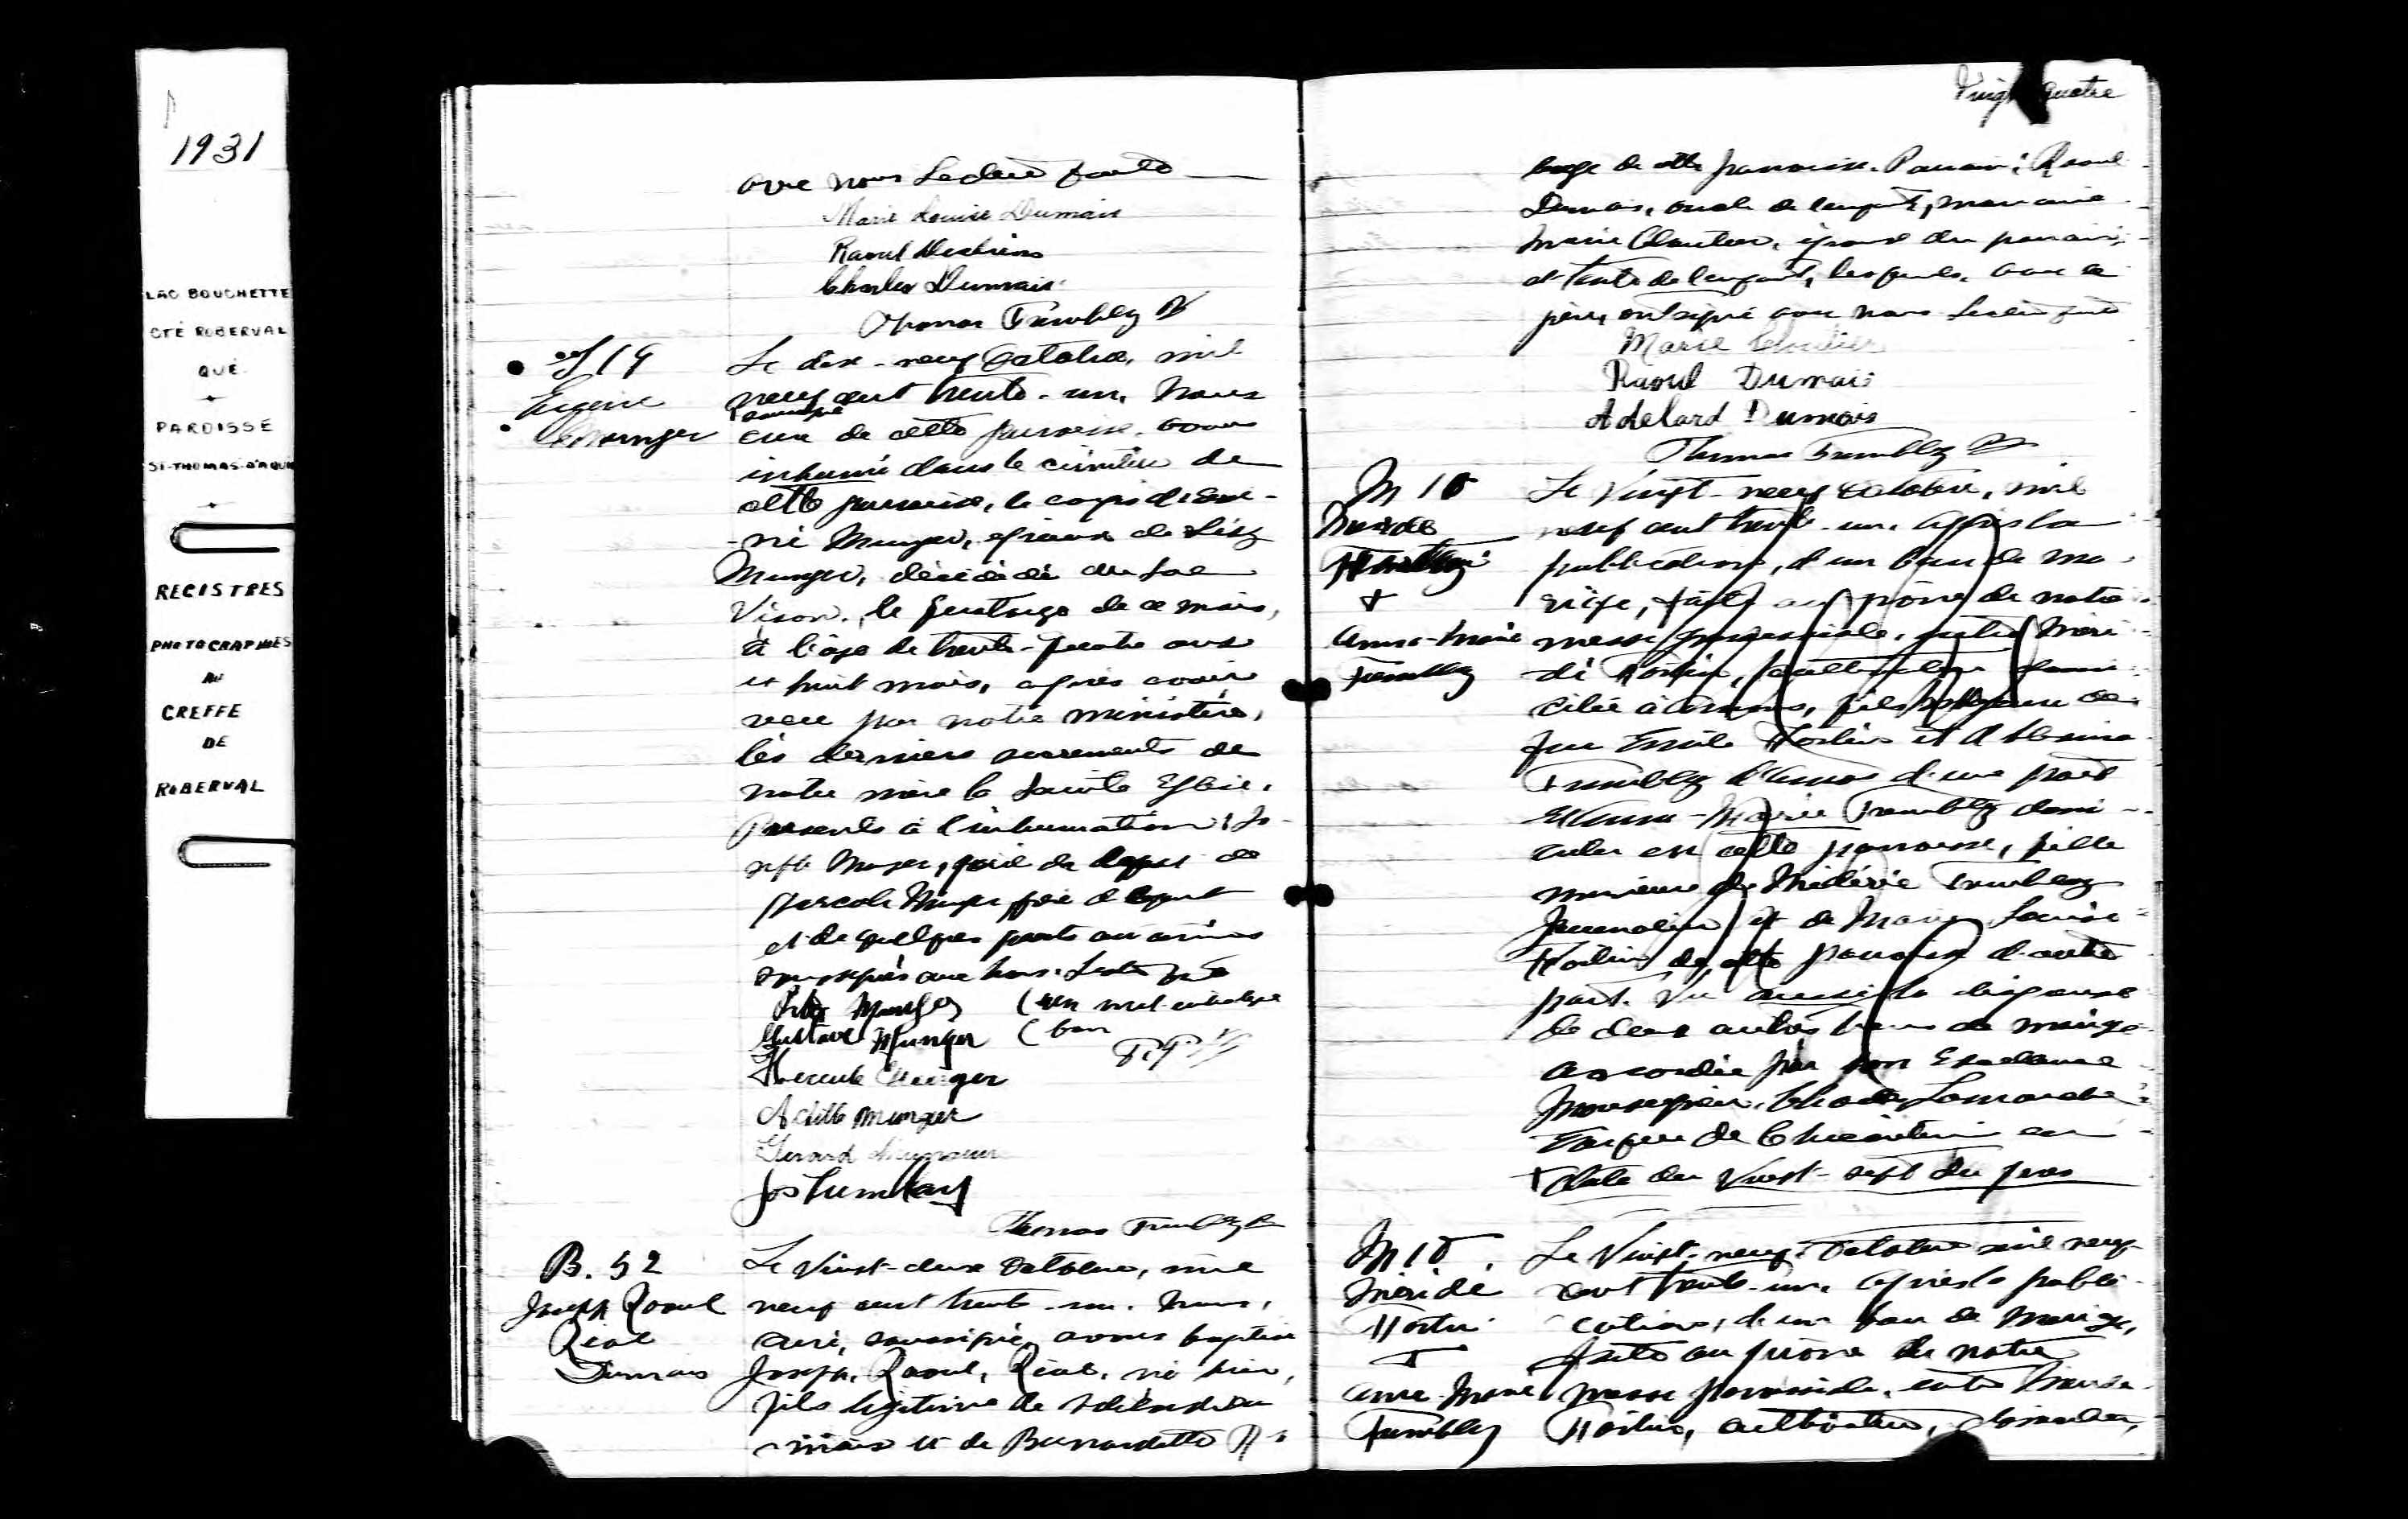 1931
LAC BOUCHETTE
CTÉ ROBERVAL
QUÉ.
PAROISSE
ST-THOMAS-D'AQUIN
REGISTRES
PHOTOGRAPHIÉS
AU
GREFFE
DE
ROBERVAL
avec nous Lecture faite
Marie Louise Dumais
Raoul
Charles Dumais
Thomas Tremblay
S 19
Eugène
Munger
Le dix-neuf Octobre, mil
neuf cent trente-un, Nous
soussigné
curé de cette paroisse, avons
inhumé dans le cimetière de
cette paroisse, le corps d'Eugè-
ne Munger, époux de
Munger, décédé au Lac
Vison, le quatorze de ce mois,
à l'âge de trente-quatre ans
et huit mois, après avoir
reçu par notre ministère,
les derniers sacrements de
notre mère la Sainte Eglise.
Présents à l'inhumation: Jo-
seph Munger, père du
Hercule Munger
et de quelques parents ou amis
soussignés avec nous. Lecture
Munger (un mot interligne
Gustave Munger (bon
Hercule Munger
Achille Munger
Gérard
Jos Tremblay
Thomas Tremblay
B. 52
Joseph Raoul
Réal
Dumais
Le Vingt-deux Octobre, mil
neuf cent trente-un. Nous,
curé, soussigné avons baptisé
Joseph, Raoul, Réal, né hier,
fils légitime de
mais et de Bernardette
Vingt quatre
de cette paroisse. Parrain: Raoul
Dumais, oncle de l'enfant, marraine
Marie Cloutier, épouse du parrain,
et tante de l'enfant, lesquels, avec le
père, ont signé avec nous Lecture faite
Marie Cloutier
Raoul Dumais
Adelard Dumais
Thomas Tremblay
M 10
+
Anna-Marie
Tremblay
Le Vingt-neuf Octobre, mil
neuf cent trente-un. Après la
publication, d'un ban de ma-
riage, faite au prône de notre
messe paroissiale, entre Méri-
dé Fortin, cultivateur domi-
cilié à Amos, fils majeur de
feu Emile Fortin et
Tremblay d'Amos d'une part
et Anna-Marie Tremblay domi-
ciliée en cette paroisse, fille
mineure de Médéric Tremblay
journalier et de Marie Louise
Fortin de cette paroisse d'autre
part. Vu aussi la dispense
de deux autres bans de mariage
accordée par Son Excellence
Monseigneur, Charles Lamarche
Evêque de Chicoutimi en
date du Vingt-sept du
M 10
Méridé
Fortin
+
Anna-Marie
Tremblay
Le Vingt-neuf Octobre mil neuf
cent trente-un. Après la publi-
cation, d'un ban de mariage,
faite au prône de notre
messe paroissiale, entre
Fortin, cultivateur, domicilié,